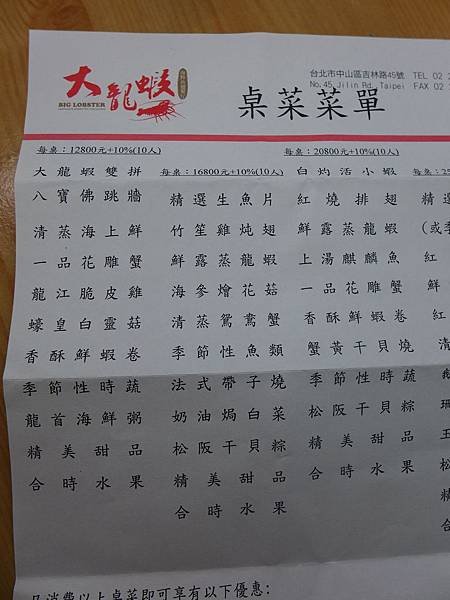 大龍蝦
BIG LOBSTER
台北市中山區吉林路45號 TEL 02
No.45, Jilin Rd., Taipei FAX 02
桌菜菜單
每桌：12800元+10%(10人)
大龍蝦雙拼
八寶佛跳牆
清蒸海上鮮
一品花雕蟹
龍江脆皮雞
蠔皇白靈菇
香酥鮮蝦卷
季節性時蔬
龍首海鮮粥
精美甜品
合時水果
每桌：16800元+10%(10人)
精選生魚片
竹笙雞炖翅
鮮露蒸龍蝦
海參燴花菇
清蒸鴛鴦蟹
季節性魚類
法式帶子燒
奶油焗白菜
松阪干貝粽
精美甜品
合時水果
每桌：20800元+10%(10人)
白灼活小蝦
紅燒排翅
鮮露蒸龍蝦
上湯麒麟魚
一品花雕蟹
香酥鮮蝦卷
蟹黃干貝燒
季節性時蔬
松阪干貝粽
精美甜品
合時水果
每桌：25
精選
(或季
紅
鮮
紅
清
松
精
合
凡消費以上桌菜即可享有以下優惠：